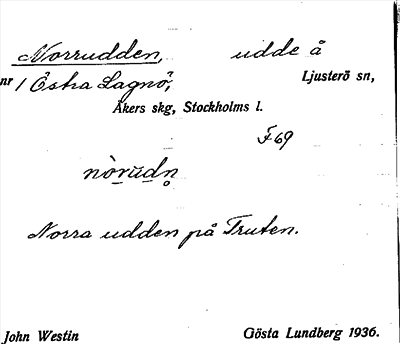 Norrudden, udde å
nr 1 Östra Lagnö, Ljusterö sn,
Åkers skg, Stockholms l.
F 69
nòrudn̥
Norra udden på Truten.
John Westin Gösta Lundberg 1936.